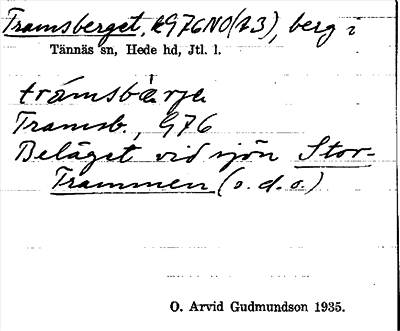 Tramsberget, kG76NO(A3), berg i
Tännäs sn, Hede hd, Jtl. l.
trámsbàrje
Tramsb., G76
Beläget vid sjön Stor-
Trammen (o.d.o.)
O. Arvid Gudmundson 1935.